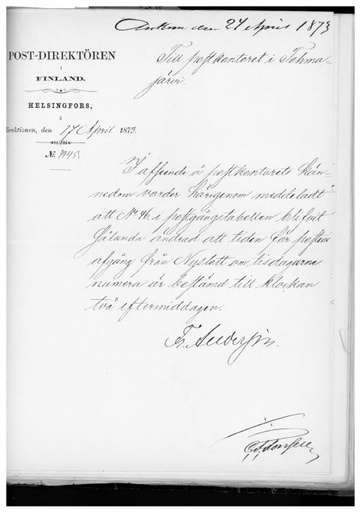 Ankom den 24 April 1873
POST-DIREKTÖREN
i
FINLAND.
HELSINGFORS,
å
Direktionen, den 17 April 1873.
№
Till postkontoret i Tohma-
järvi.
I afseende å postkontorets kän-
nedom varder härigenom meddeladt
att № 46 i postgångstabellen blifvit
sålunda ändrad att tiden för postens
afgång från Nyslott om tisdagarne
numera är bestämd till klockan
två eftermiddagen.